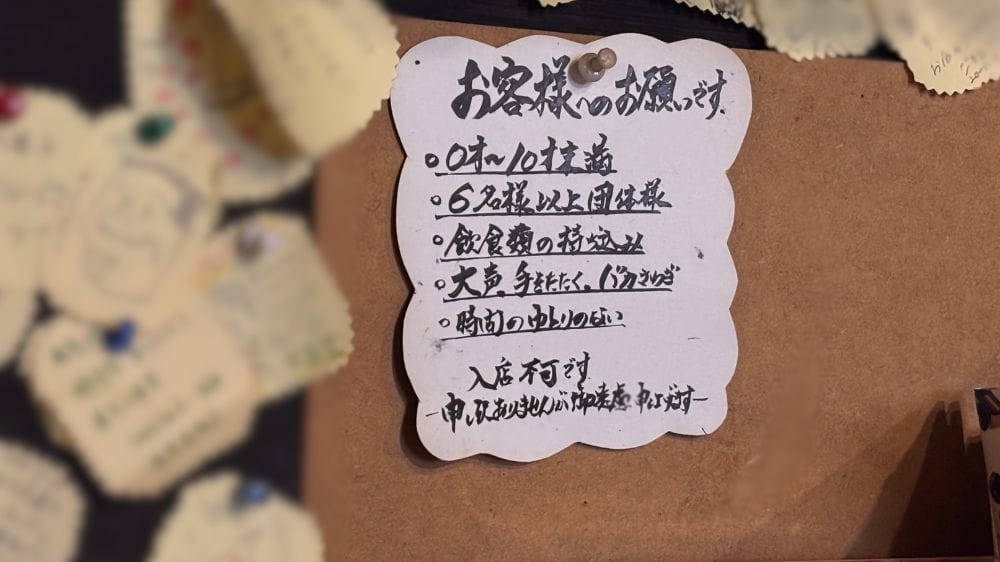 お客様へのお願いです
○0才~10才未満
○6名様以上団体様
○飲食類の持ち込み
○大声、手をたたく、バカさわぎ
○時間のゆとりのない
入店不可です
ー申し訳ありませんが御遠慮申し上げますー